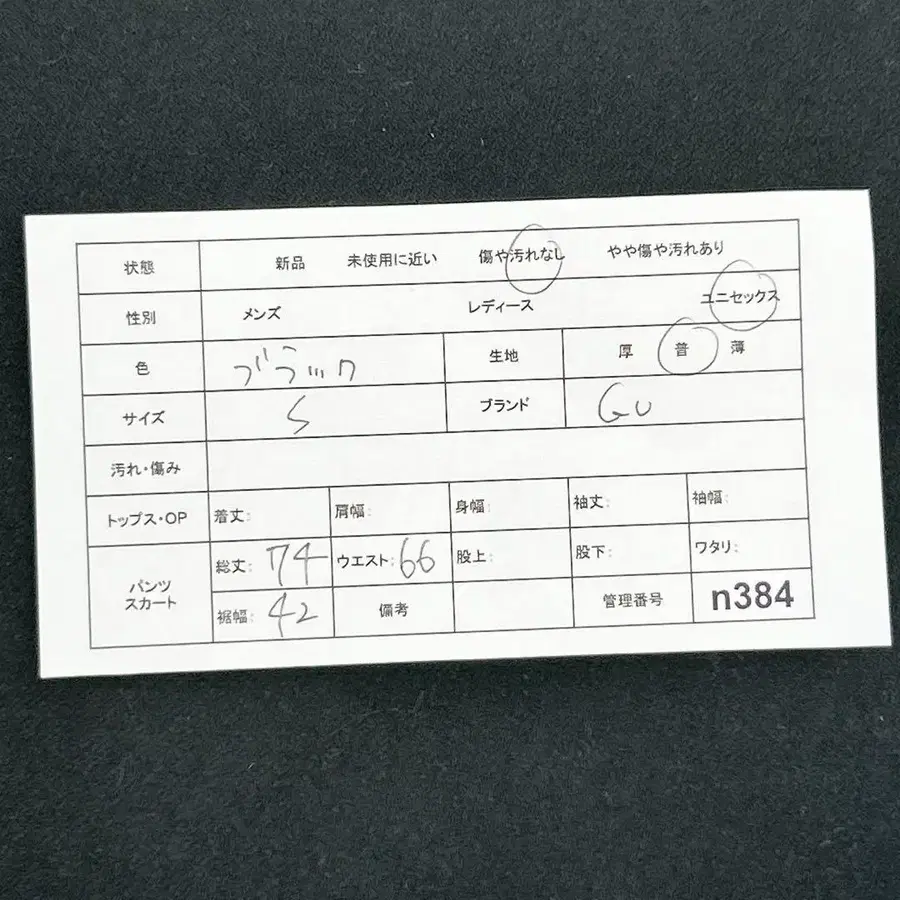 状態 新品 未使用に近い 傷や汚れなし やや傷や汚れあり
性別 メンズ レディース ユニセックス
色 ブラック 生地 厚 普 薄
サイズ S ブランド GU
汚れ・傷み
トップス・OP 着丈: 肩幅: 身幅: 袖丈: 袖幅:
パンツ スカート 総丈: 74 ウエスト: 66 股上: 股下: ワタリ:
裾幅: 42 備考 管理番号 n384